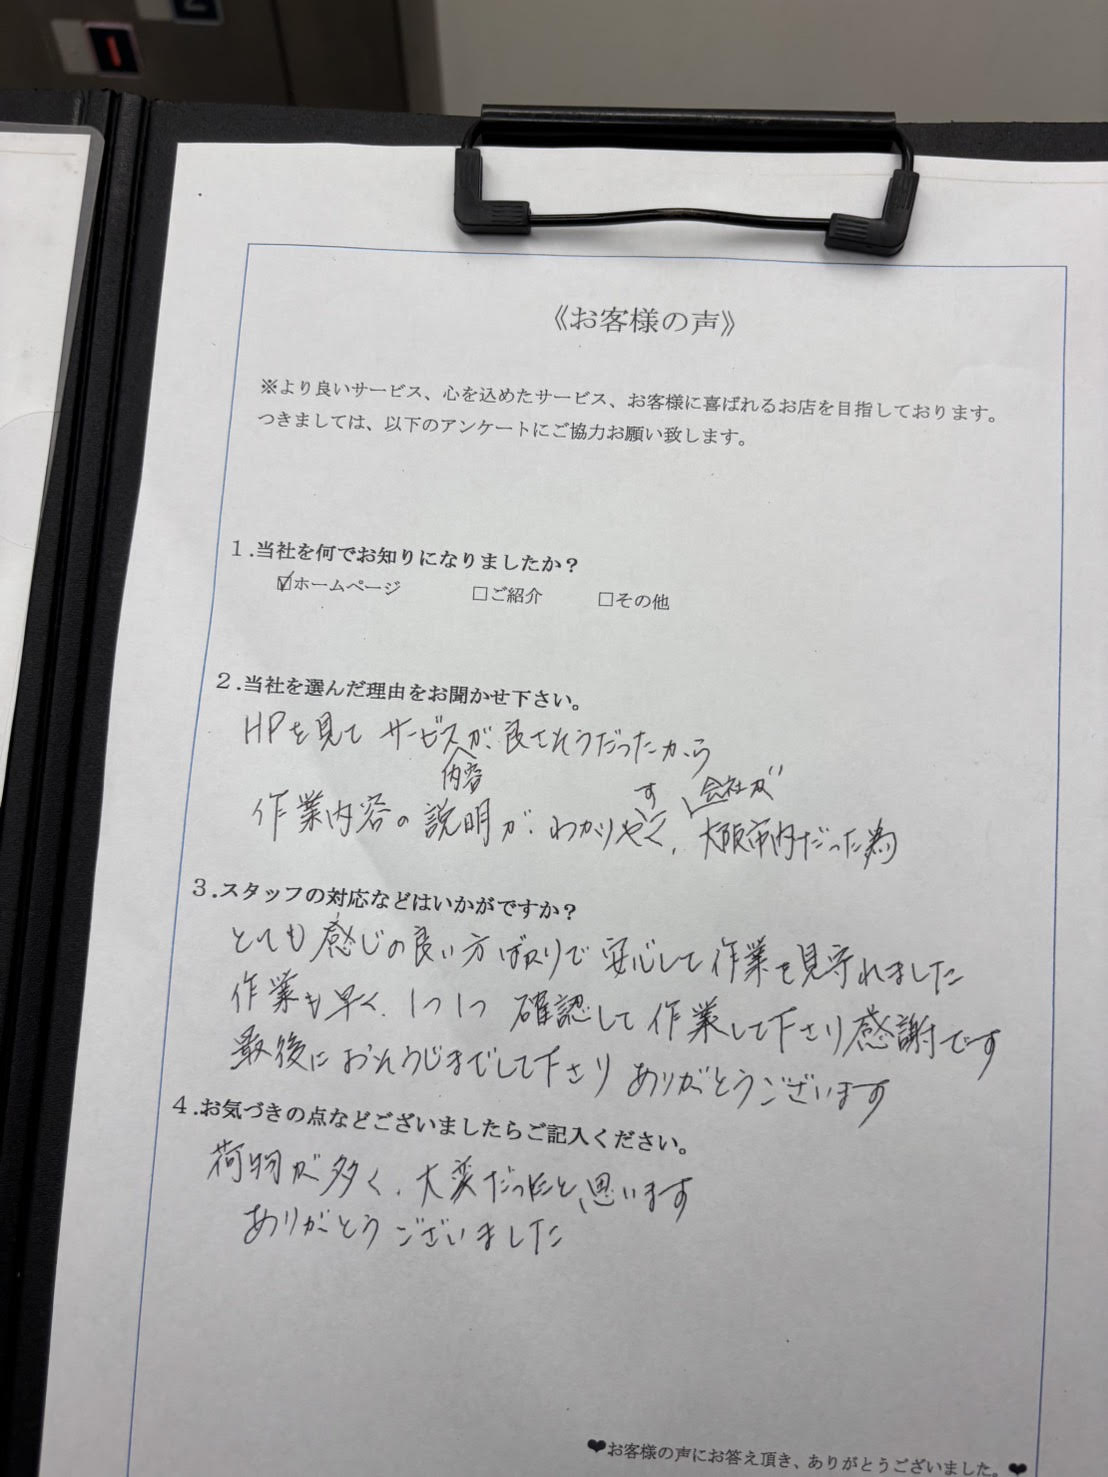 2
1
《お客様の声》
※より良いサービス、心を込めたサービス、お客様に喜ばれるお店を目指しております。
つきましては、以下のアンケートにご協力お願い致します。
1.当社を何でお知りになりましたか?
☑ホームページ □ご紹介 □その他
2.当社を選んだ理由をお聞かせ下さい。
HPを見て サービス内容が、良さそうだったから
作業内容の説明が、わかりやすく、会社が大阪市内だった為
3.スタッフの対応などはいかがですか?
とても感じの良い方ばかりで安心して作業を見守れました
作業も早く、1つ1つ 確認して作業して下さり感謝です
最後におそうじまでして下さり ありがとうございます
4.お気づきの点などございましたらご記入ください。
荷物が多く、大変だったと、思います
ありがとうございました
❤お客様の声にお答え頂き、ありがとうございました。❤